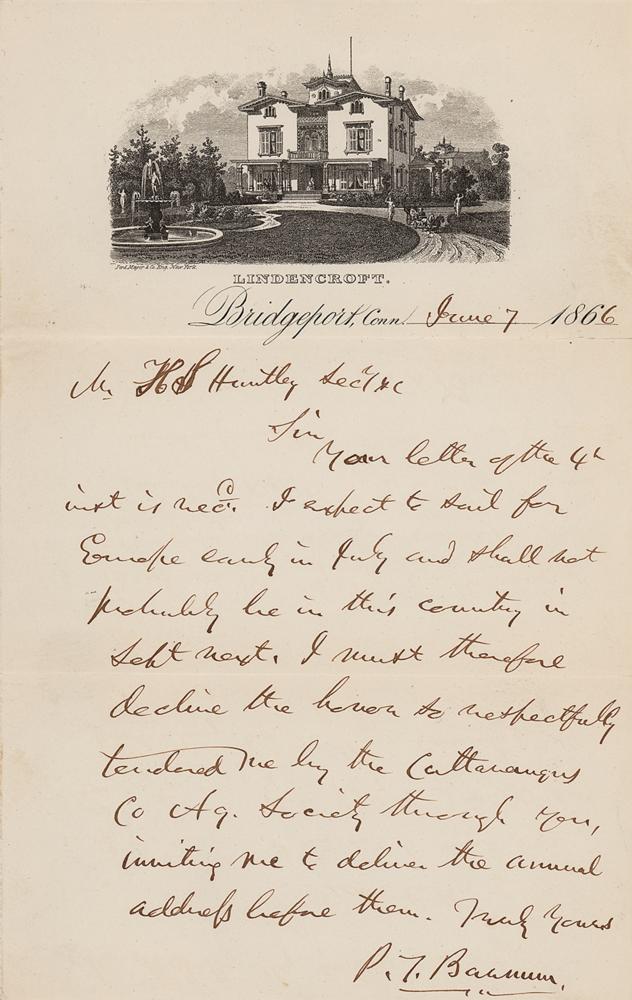 Ferd. Mayer & Co. Eng. New York.
LINDENCROFT.
Bridgeport, Conn. June 7 1866
Mr H S Huntley Secy &c
Sir
Your letter of the 4th
inst is recd. I expect to sail for
Europe early in July and shall not
probably be in this country in
Sept next. I must therefore
decline the honor so respectfully
tendered me by the Cattaraugus
Co Ag. Society through you,
inviting me to deliver the annual
address before them. Truly Yours
P. T. Barnum.